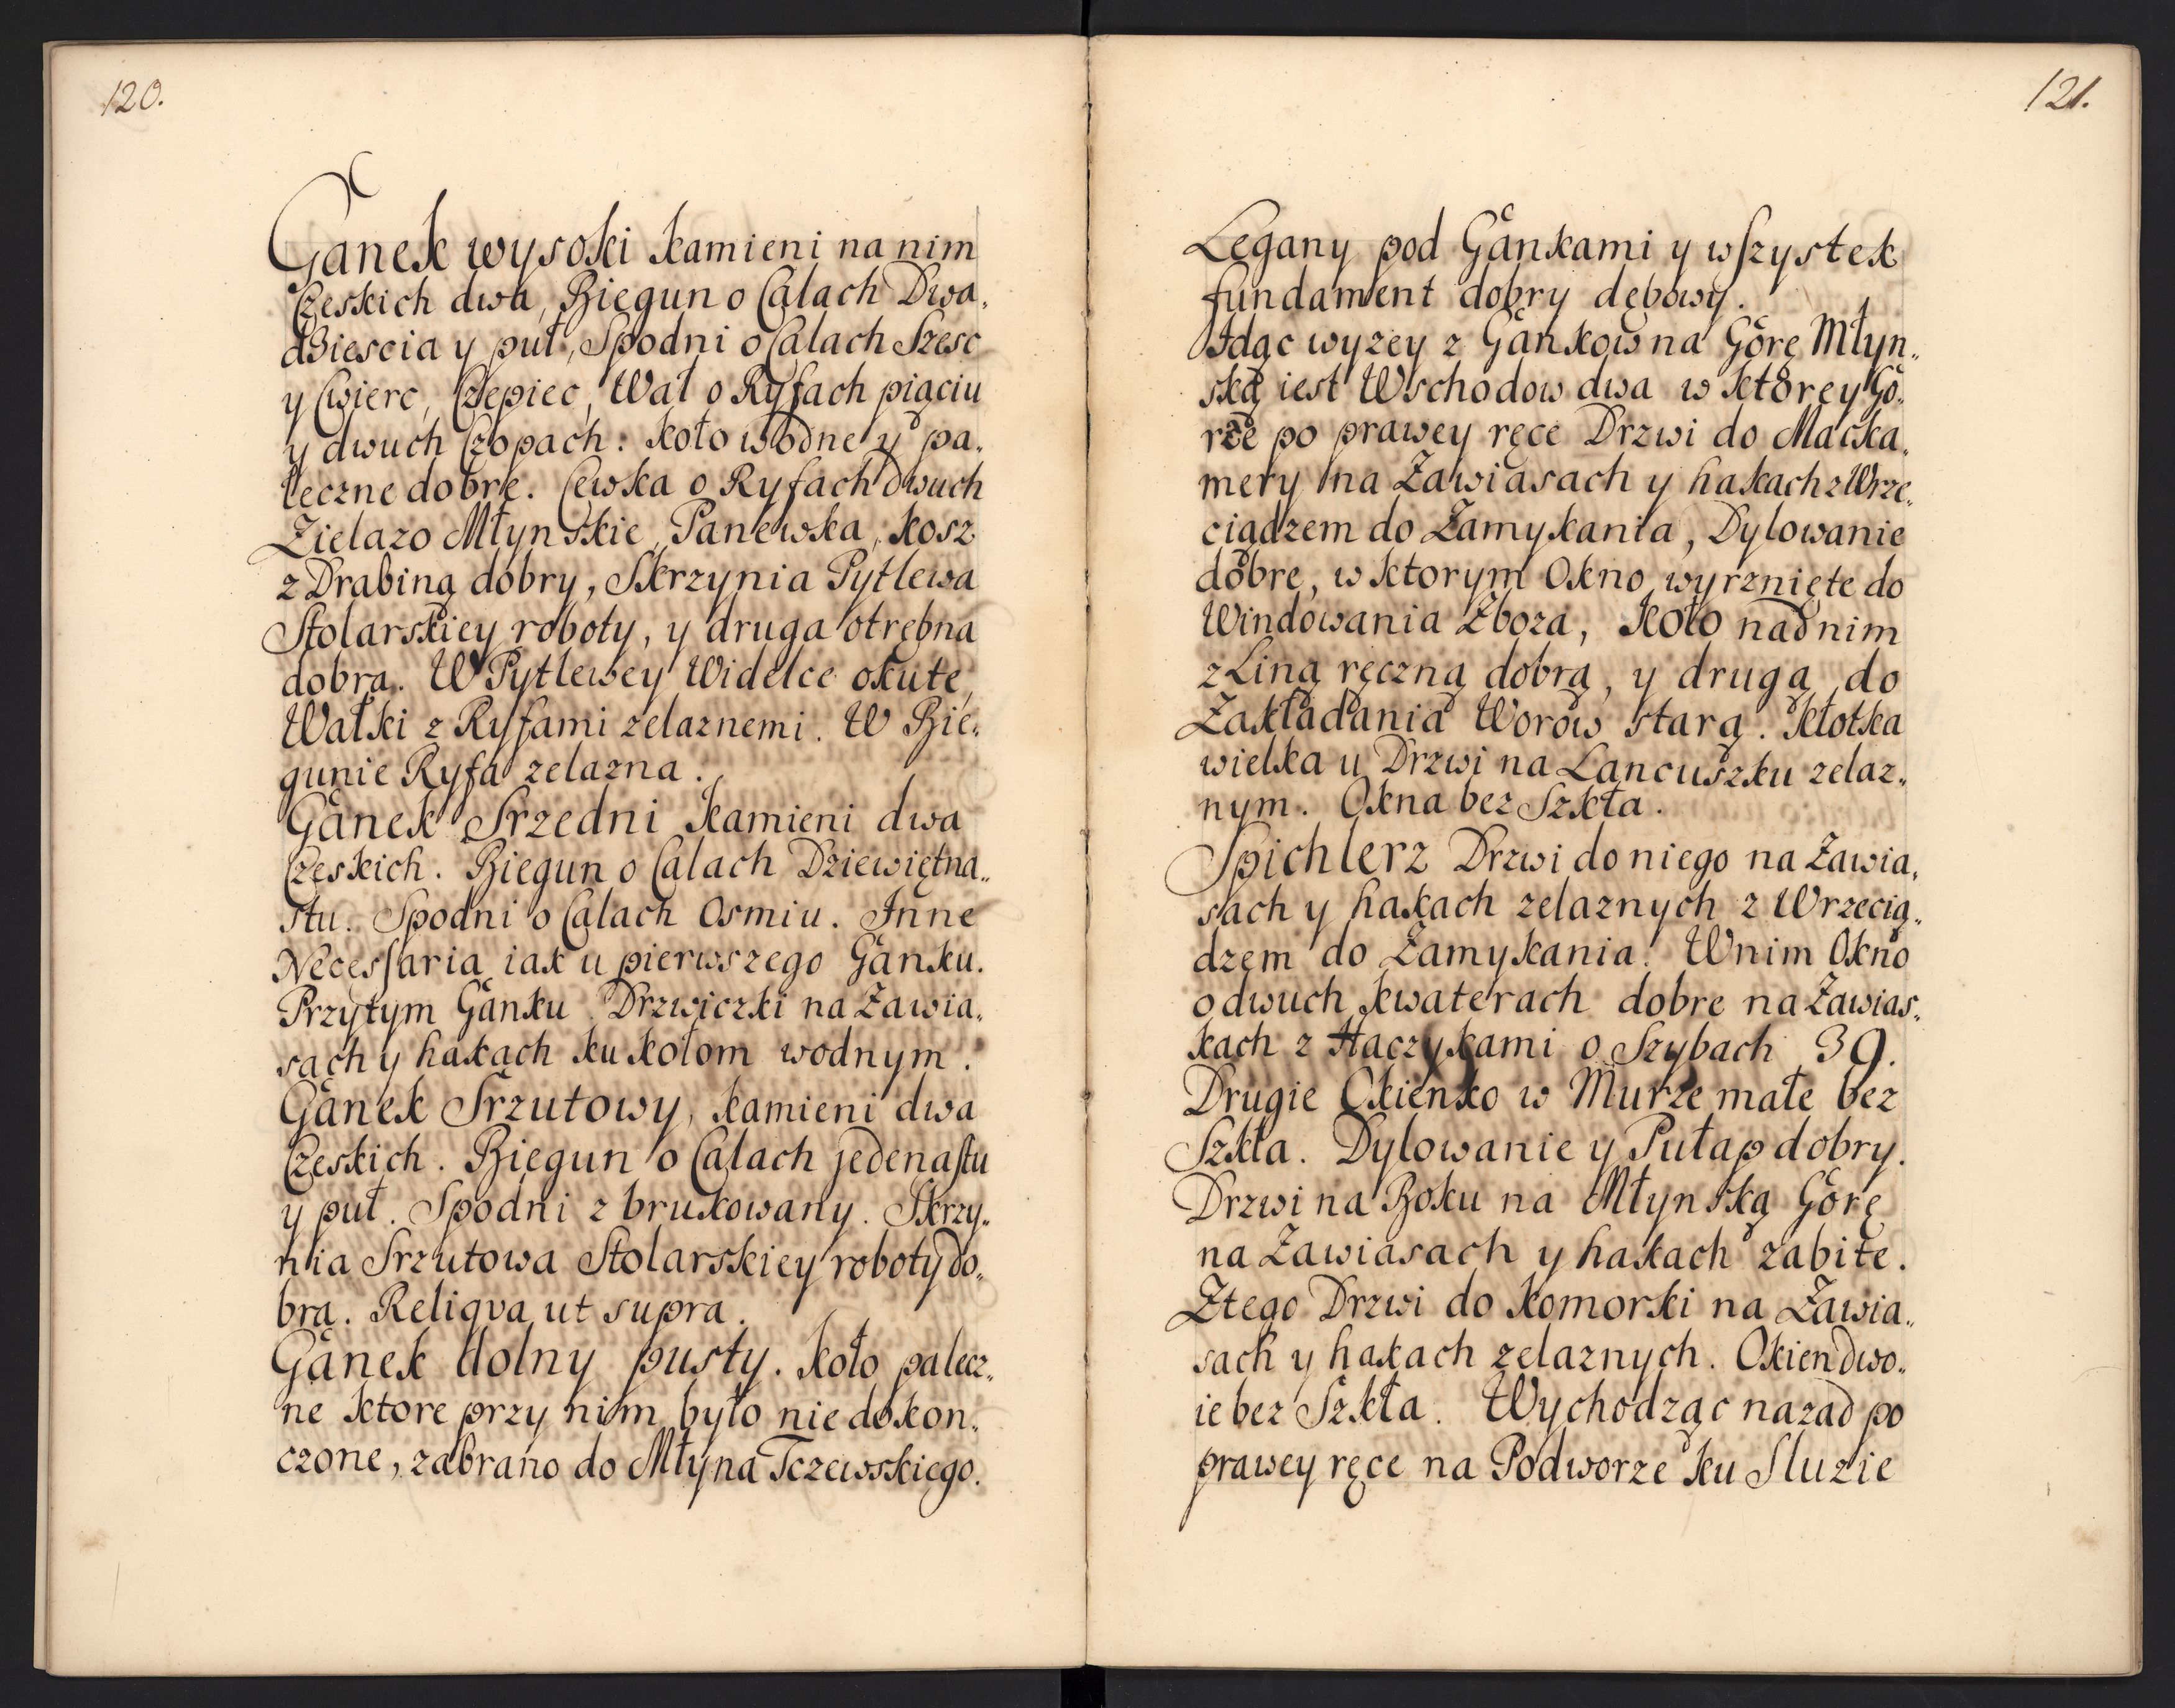 120.
Ganek wysoki kamieni na nim
Czeskich dwa, Biegun o Calach Dwa„
dziescia y puł, Spodni o Calach Szesc
y Cwierc, Czepiec, Wał o Ryfach piąciu
y dwuch Czopach: koło wodne y pa„
leczne dobre. Cewka o Ryfach dwuch
Zielazo Młynskie, Panewka, kosz
z Drabiną dobry, Skrzynia Pytlewa
Stolarskiey roboty, y druga otrębna
dobra. W Pytlewey Widelce okute,
Wałki z Ryfami zelaznemi. W Bie„
gunie Ryfa zelazna.
Gånek Srzedni kamieni dwa
Czeskich. Biegun o Calach Dziewiętna„
stu. Spodni o Calach Osmiu. Inne
Necessaria iak u pierwszego Gånku.
Przytym Gånku Drzwiczki na Zawia„
sach y hakach ku kołom wodnym.
Gånek Srzutowy, kamieni dwa
Czeskich. Biegun o Calach jedenastu
y puł. Spodni zbrukowany. Skrzy„
nia Srzutowa Stolarskiey roboty do„
bra. Reliqva ut supra.
Gånek dolny pusty. koło palecz„
ne ktore przy nim było nie dokon„
czone, zabrano do Młyna Tczewskiego.
121.
Legany pod Gånkami y wszystek
fundament dobry dębowy.
Idąc wyzey z Gånkow na Górę Młyn„
ską iest Wschodow dwa w ktorey Gó„
rze po prawey ręce Drzwi do Macka„
mery na Zawiasach y hakach z Wrze„
ciądzem do Zamykania, Dylowanie
dobre, w ktorym Okno wyrznięte do
Windowania Zboza, koło nad nim
z Liną ręczną dobrą, y drugą do
Zakładania Worow starą. kłotka
wielka u Drzwi na Lancuszku zelaz„
nym. Okna bez Szkła.
Spichlerz Drzwi do niego na Zawia„
sach y hakach zelaznych z Wrzecią„
dzem do Zamykania. W nim Okno
o dwuch kwaterach dobre na Zawias„
kach z Haczykami o Szybach 39.
Drugie Okienko w Murze małe bez
Szkła. Dylowanie y Pułap dobry.
Drzwi na Boku na Młynską Górę
na Zawiasach y hakach zabite.
Ztego Drzwi do komorki na Zawia„
sach y hakach zelaznych. Okien dwo„
ie bez Szkła. Wychodząc nazad po
prawey ręce na Podworze ku Sluzie